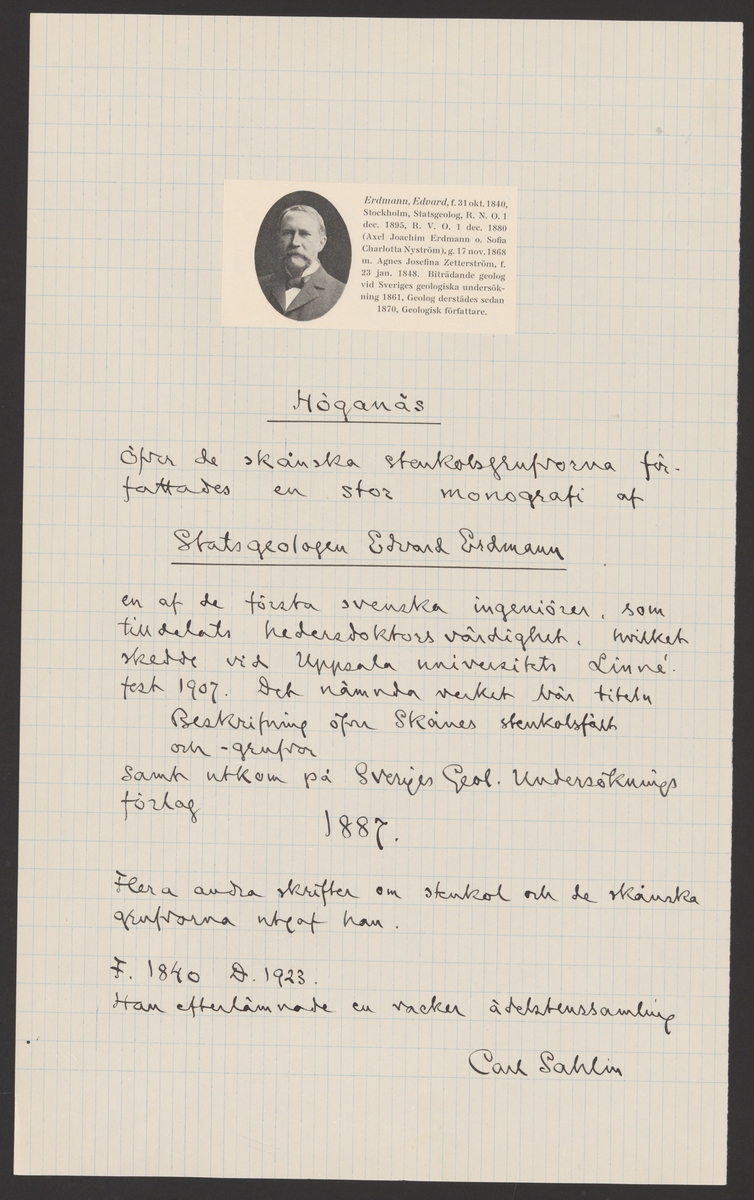 Erdmann, Edvard, f. 31 okt. 1840,
Stockholm, Statsgeolog, R. N. O. 1
dec. 1895, R. V. O. 1 dec. 1880
(Axel Joachim Erdmann o. Sofia
Charlotta Nyström), g. 17 nov. 1868
m. Agnes Josefina Zetterström, f.
23 jan. 1848. Biträdande geolog
vid Sveriges geologiska undersök-
ning 1861, Geolog derstädes sedan
1870, Geologisk författare.
Höganäs
Öfver de skånska stenkolsgrufvorna för-
fattades en stor monografi af
Statsgeologen Edvard Erdmann
en af de första svenska ingeniörer, som
tilldelats hedersdoktorsvärdighet, hvilket
skedde vid Uppsala universitets Linné-
fest 1907. Det nämnda verket bär titeln
Beskrifning öfver Skånes stenkolsfält
och -grufvor
samt utkom på Sveriges Geol. Undersöknings
förlag
1887.
Flera andra skrifter om stenkol och de skånska
grufvorna utgaf han.
F. 1840 D. 1923.
Han efterlämnade en vacker ädelstenssamling
Carl Sahlin